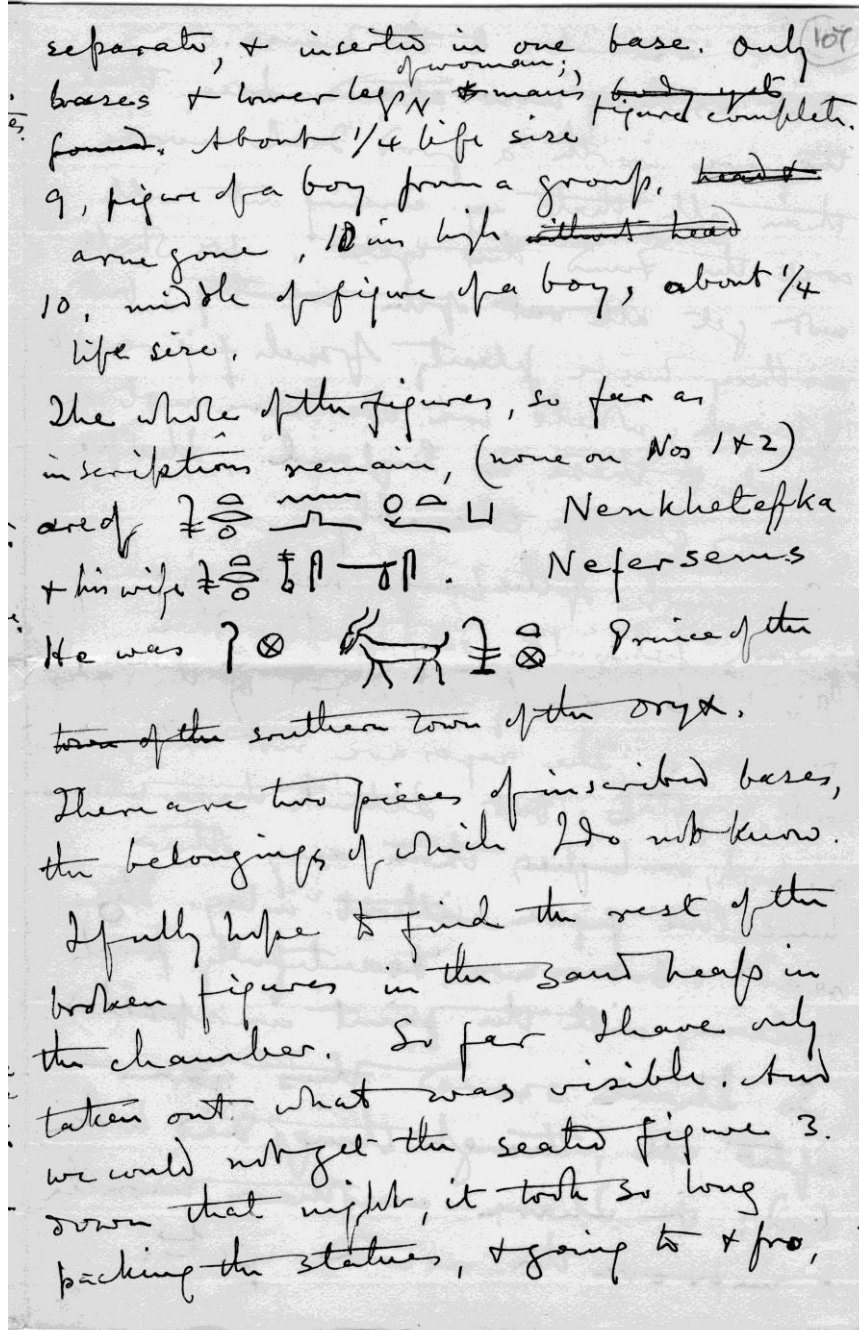 107
separate, & inserted in one base. Only
of woman;
bases & lower legs & man's body yet
figure complete.
found. About 1/4 life size
9, figure of a boy from a group, head &
arms gone, 10 ins high without head
10, middle of figure of a boy, about 1/4
life size.
The whole of the figures, so far as
inscriptions remain, (none on Nos 1 & 2)
are of Nenkhetefka
& his wife . Nefersems
He was Prince of the
town of the southern town of the oryx.
There are two pieces of inscribed bases,
the belongings of which I do not know.
I fully hope to find the rest of the
broken figures in the sand heaps in
the chamber. So far I have only
taken out what was visible. And
we could not get the seated figure 3.
down that night, it took so long
packing the statues, & going to & fro,